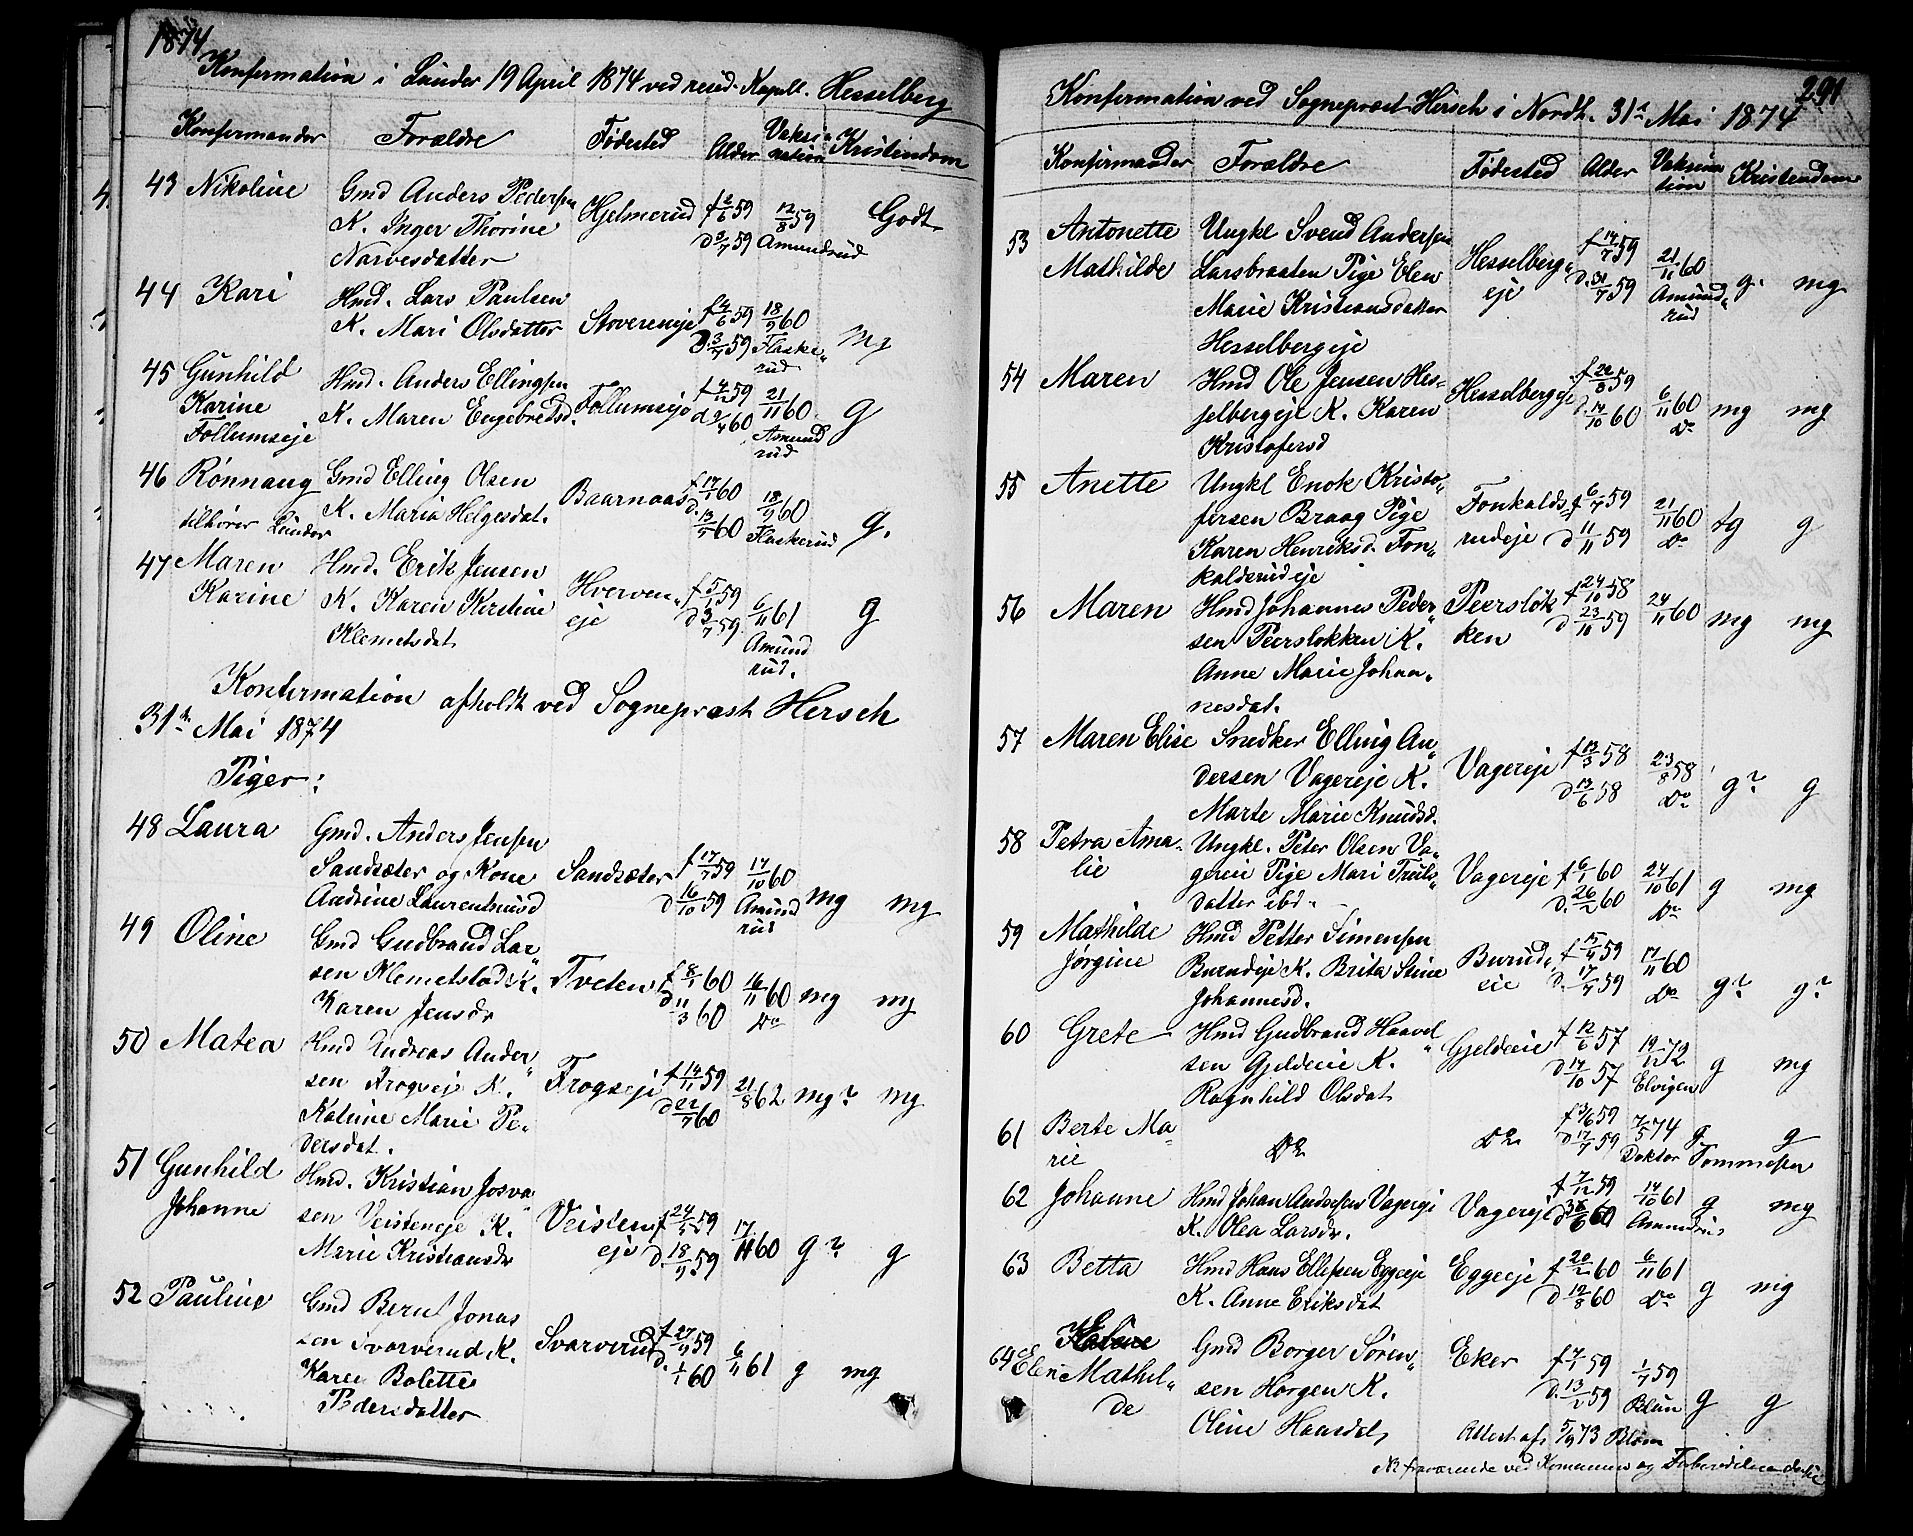 1874
Konfirmation i Lunder 19 April 1874 ved resid. Kapell. Hesselberg
Konfirmander Forældre Fødested Alder Vaksination Kristendom
43 Nikoline Gmd Anders Pedersen Hjelmerud f 2/6 59 12/8 59 Godt
K. Inger Thorine d 3/7 59 Amundrud
Narvesdatter
44 Kari Hmd. Lars Paulsen Stovereneje f 4/6 59 18/9 60 mg
K. Mari Olsdatter D. 3/7 59 Flaske„
rud
45 Gunhild Hmd. Anders Ellingsen Follumseje 59 21/11 60 g
Karine K. Maren Engebretsd. d 9/4 60 Asmund
Follumseje rud
46 Rønnaug Gmd Elling Olsen Baarnaas f 17/1 60 18/9 60 g.
tilhører Lunder K. Maria Helgesdat. d. 60 Flaskerud
47 Maren Hmd. Erik Jensen Hverven„ f 5/1 59 6/11 61 g
Karine K. Karen Kirstine eje d 3/7 59 Amund
Klemetsdat. rud.
Konfirmation afholdt ved Sogneprest Hersch
31te Mai 1874
Piger:
48 Laura Gmd. Anders Jensen
Sandsæter og Kone Sandsæter f 17/7 59 17/10 60 mg mg
Andrine Laurentiusd d 16/10 59 Amund
rud
49 Oline Gmd Gudbrand Lar„
sen Klemetstad K. Tveten f 8/1 60 16/11 60 mg mg
Karen Jensdr d 11/3 60 Do
50 Matea Hmd Andreas Ander„
sen Frogseje K. Frogseje f 14/11 59 21/8 62 mg? mg
Katrine Marie Pe„ d 22/7 60
dersdat.
51 Gunhild Hmd. Kristian Josva„
Johanne sen Veisteneje K. Veisten„ f 24/5 59 17/11 60 g? g
Marie Kristiansdr eje d 18/9 59
52 Pauline Gmd Bernt Jonas
sen Svarverud K. Svarverud f 27/9 59 6/11 61 g mg
Karen Bolette d. 1/1 60
Pedersdatter
291
Konfirmation ved Sogneprest Hersch i Nordh. 31te Mai 1874
Konfirmander Forældre Fødested Alder Vaksination Kristendom
53 Antonette Ungkl Svend Andersen Hesselberg„ f 14/7 59 21/11 60 g. mg
Mathilde Larsbraaten Pige Elen eje d. 31/7 59 Amund„
Marie Kristiansdatter rud
Hesselbergeje
54 Maren Hmd Ole Jensen Hes„ Hesselbergeje f 26/3 59 6/11 60 mg mg
selbergeje K. Karen d. 14/10 60 Do
Kristofersd
55 Anette Ungkl Enok Kristo„ Fonkalds„ f 6/7 59 21/11 60 tg g
fersen Braag Pige rudeje d 11/11 59 Do
Karen Henriksd. Fon„
kalderudeje
56 Maren Hmd Johannes Peder„ Peersløk f 24/10 58 24/11 60 mg mg
sen Peersløkken K. ken d 23/10 59
Anne Marie Johan„
nesdat.
57 Maren Elise Snedker Elling An„
dersen Vagereje K. Vagereje f 13/3 58 23/8 58 g? g
Marte Marie Knudsd. d 13/6 58 Do
58 Petra Ama„ Ungkl. Peter Olsen Va„
lie gereie Pige Mari Truls„ Vagereje f 6/1 60 24/10 61 g mg
datter ibd. d. 26/2 60 Do
59 Mathilde Hmd Petter Simensen
Jørgine Burudeje K. Brita Stine Burud„ f 15/4 59 17/11 60 g? g?
Johannesd. eie d. 17/7 59 Do
60 Grete Hmd Gudbrand Haavel„
sen Gjeldeeie K. Gjeldeeie f 12/6 57 72 g mg
Ragnhild Olsdat d 17/10 57 Elvigen
61 Berte Ma„ Do Do f 3/6 59 7/5 74 g g
rie d 17/7 59 Doktor Tommesen
62 Johanne Hmd Johan Andersen Vagereje Vagereje f 7/12 59 14/10 61 g mg
K. Olea Larsdr. 60 Amundrud
63 Betta Hmd Hans Ellefsen Eggeeje Eggeeje f 20/2 60 6/11 61 g mg
K. Anne Eriksdat d 12/8 60 Do
64 Elen Mathil„ Gmd Borger Søren„ Eker f 7/1 59 1/7 59 g g
de sen Horgen K. d. 13/2 59 Blom
Oline Hansdat, Attest af 5/9 73 Blom
fraværende ved Kommunens og Forberedelsen